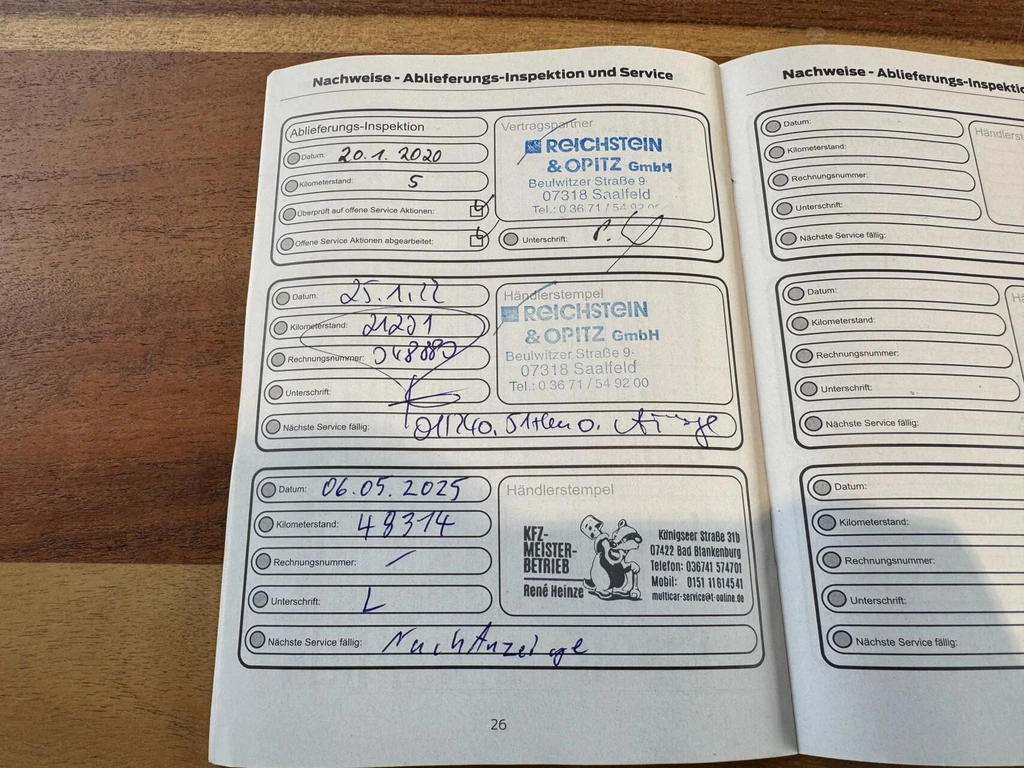 Nachweise - Ablieferungs-Inspektion und Service
Ablieferungs-Inspektion
Datum: 20.1.2020
Kilometerstand: 5
Überprüft auf offene Service Aktionen:
Offene Service Aktionen abgearbeitet:
Vertragspartner
REICHSTEIN
& OPITZ GmbH
Beulwitzer Straße 9
07318 Saalfeld
Tel.: 0 36 71 / 54 92
Unterschrift:
Datum: 25.1.22
Kilometerstand: 21221
Rechnungsnummer:
Unterschrift:
Nächste Service fällig:
Händlerstempel
REICHSTEIN
& OPITZ GmbH
Beulwitzer Straße 9
07318 Saalfeld
Tel.: 0 36 71 / 54 92 00
Datum: 06.05.2025
Kilometerstand: 48314
Rechnungsnummer: /
Unterschrift:
Nächste Service fällig: Nach Anzeige
Händlerstempel
KFZ-
MEISTER-
BETRIEB
René Heinze
Königseer Straße 31b
07422 Bad Blankenburg
Telefon: 036741 574701
Mobil: 0151 11614541
multicar-service@t-online.de
26
Nachweise - Ablieferungs-Inspektio
Datum:
Kilometerstand:
Rechnungsnummer:
Unterschrift:
Nächste Service fällig:
Händlerst
Datum:
Kilometerstand:
Rechnungsnummer:
Unterschrift:
Nächste Service fällig:
Datum:
Kilometerstand:
Rechnungsnummer:
Unterschrift:
Nächste Service fällig: